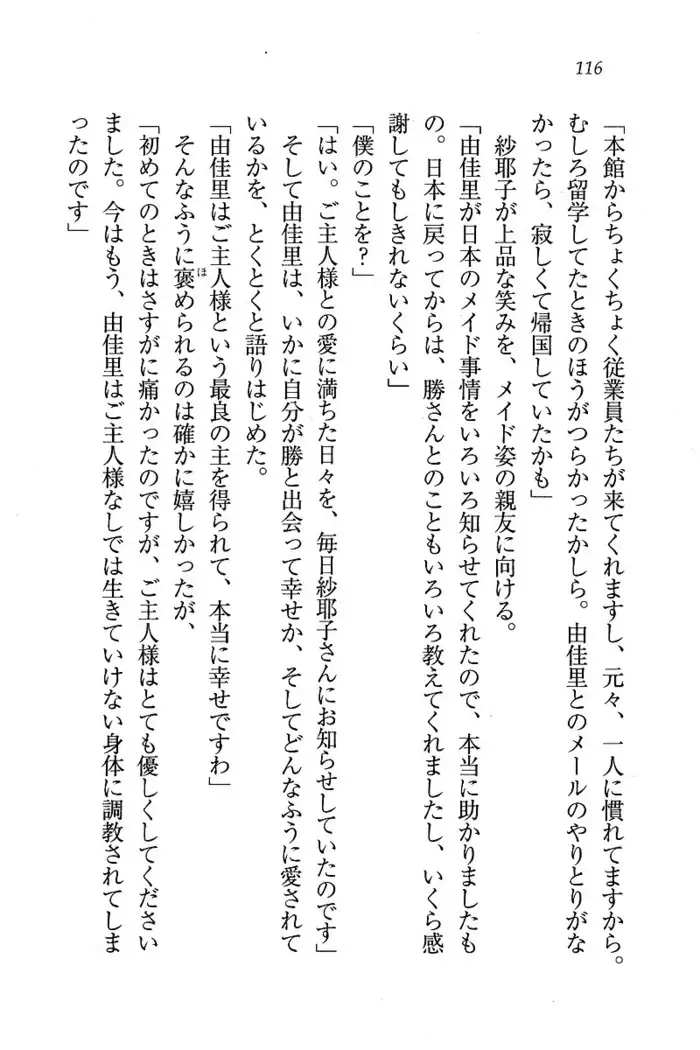 116
「本館からちょくちょく従業員たちが来てくれますし、元々、一人に慣れてますから。
むしろ留学してたときのほうがつらかったかしら。由佳里とのメールのやりとりがな
かったら、寂しくて帰国していたかも」
紗耶子が上品な笑みを、メイド姿の親友に向ける。
「由佳里が日本のメイド事情をいろいろ知らせてくれたので、本当に助かりましたも
の。日本に戻ってからは、勝さんとのこともいろいろ教えてくれましたし、いくら感
謝してもしきれないくらい」
「僕のことを？」
「はい。ご主人様との愛に満ちた日々を、毎日紗耶子さんにお知らせしていたのです」
そして由佳里は、いかに自分が勝と出会って幸せか、そしてどんなふうに愛されて
いるかを、とくとくと語りはじめた。
「由佳里はご主人様という最良の主を得られて、本当に幸せですわ」
そんなふうに褒められるのは確かに嬉しかったが、
「初めてのときはさすがに痛かったのですが、ご主人様はとても優しくしてください
ました。今はもう、由佳里はご主人様なしでは生きていけない身体に調教されてしま
ったのです」